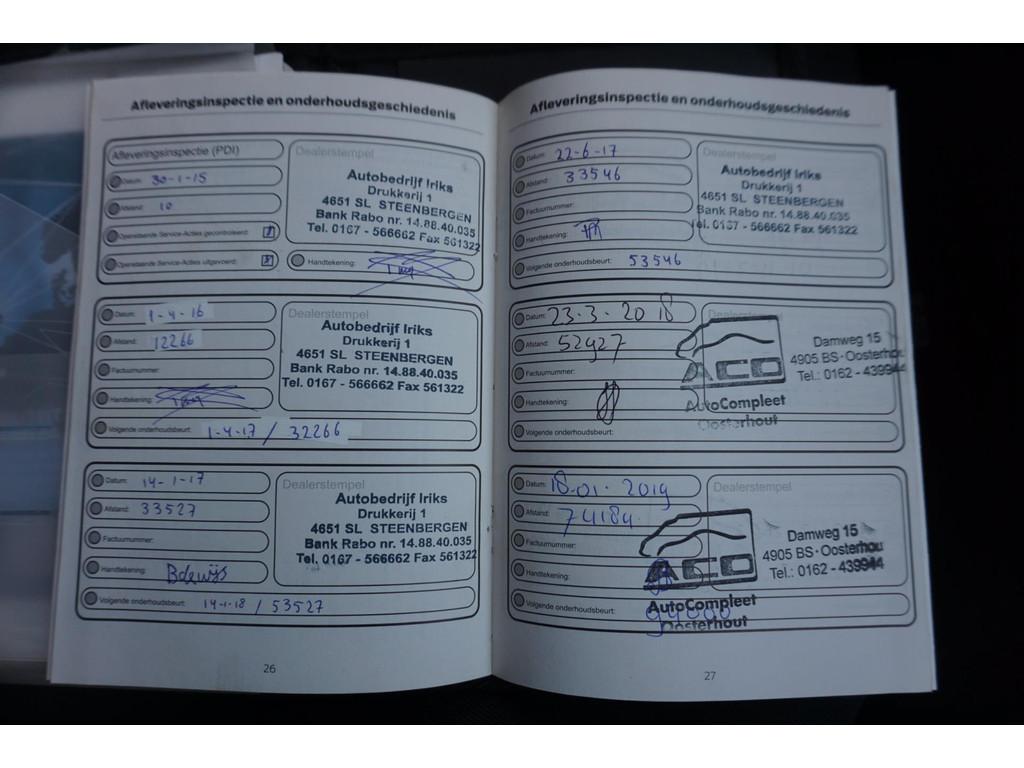 Afleveringsinspectie en onderhoudsgeschiedenis
Afleveringsinspectie (PDI)
Datum: 30-1-15
Afstand: 10
Openstaande Service-Acties gecontroleerd:
Openstaande Service-Acties uitgevoerd:
Dealerstempel
Autobedrijf Iriks
Drukkerij 1
4651 SL STEENBERGEN
Bank Rabo nr. 14.88.40.035
Tel. 0167 - 566662 Fax 561322
Handtekening:
Datum: 1-4-16
Afstand: 12266
Factuurnummer:
Handtekening:
Volgende onderhoudsbeurt: 1-4-17 / 32266
Dealerstempel
Autobedrijf Iriks
Drukkerij 1
4651 SL STEENBERGEN
Bank Rabo nr. 14.88.40.035
Tel. 0167 - 566662 Fax 561322
Datum: 14-1-17
Afstand: 33527
Factuurnummer:
Handtekening:
Volgende onderhoudsbeurt: 14-1-18 / 53527
Dealerstempel
Autobedrijf Iriks
Drukkerij 1
4651 SL STEENBERGEN
Bank Rabo nr. 14.88.40.035
Tel. 0167 - 566662 Fax 561322
26
Afleveringsinspectie en onderhoudsgeschiedenis
Datum: 22-6-17
Afstand: 33546
Factuurnummer:
Handtekening:
Volgende onderhoudsbeurt: 53546
Dealerstempel
Autobedrijf Iriks
Drukkerij 1
4651 SL STEENBERGEN
Bank Rabo nr. 14.88.40.035
Tel. 0167 - 566662 Fax 561322
Datum: 23-3-2018
Afstand: 52927
Factuurnummer:
Handtekening:
Volgende onderhoudsbeurt:
ACO
AutoCompleet
Oosterhout
Damweg 15
4905 BS - Oosterhou
Tel.: 0162 - 439944
Datum: 18-01-2019
Afstand: 74184
Factuurnummer:
Handtekening:
Volgende onderhoudsbeurt:
Dealerstempel
ACO
AutoCompleet
Oosterhout
Damweg 15
4905 BS - Oosterhou
Tel.: 0162 - 439944
27